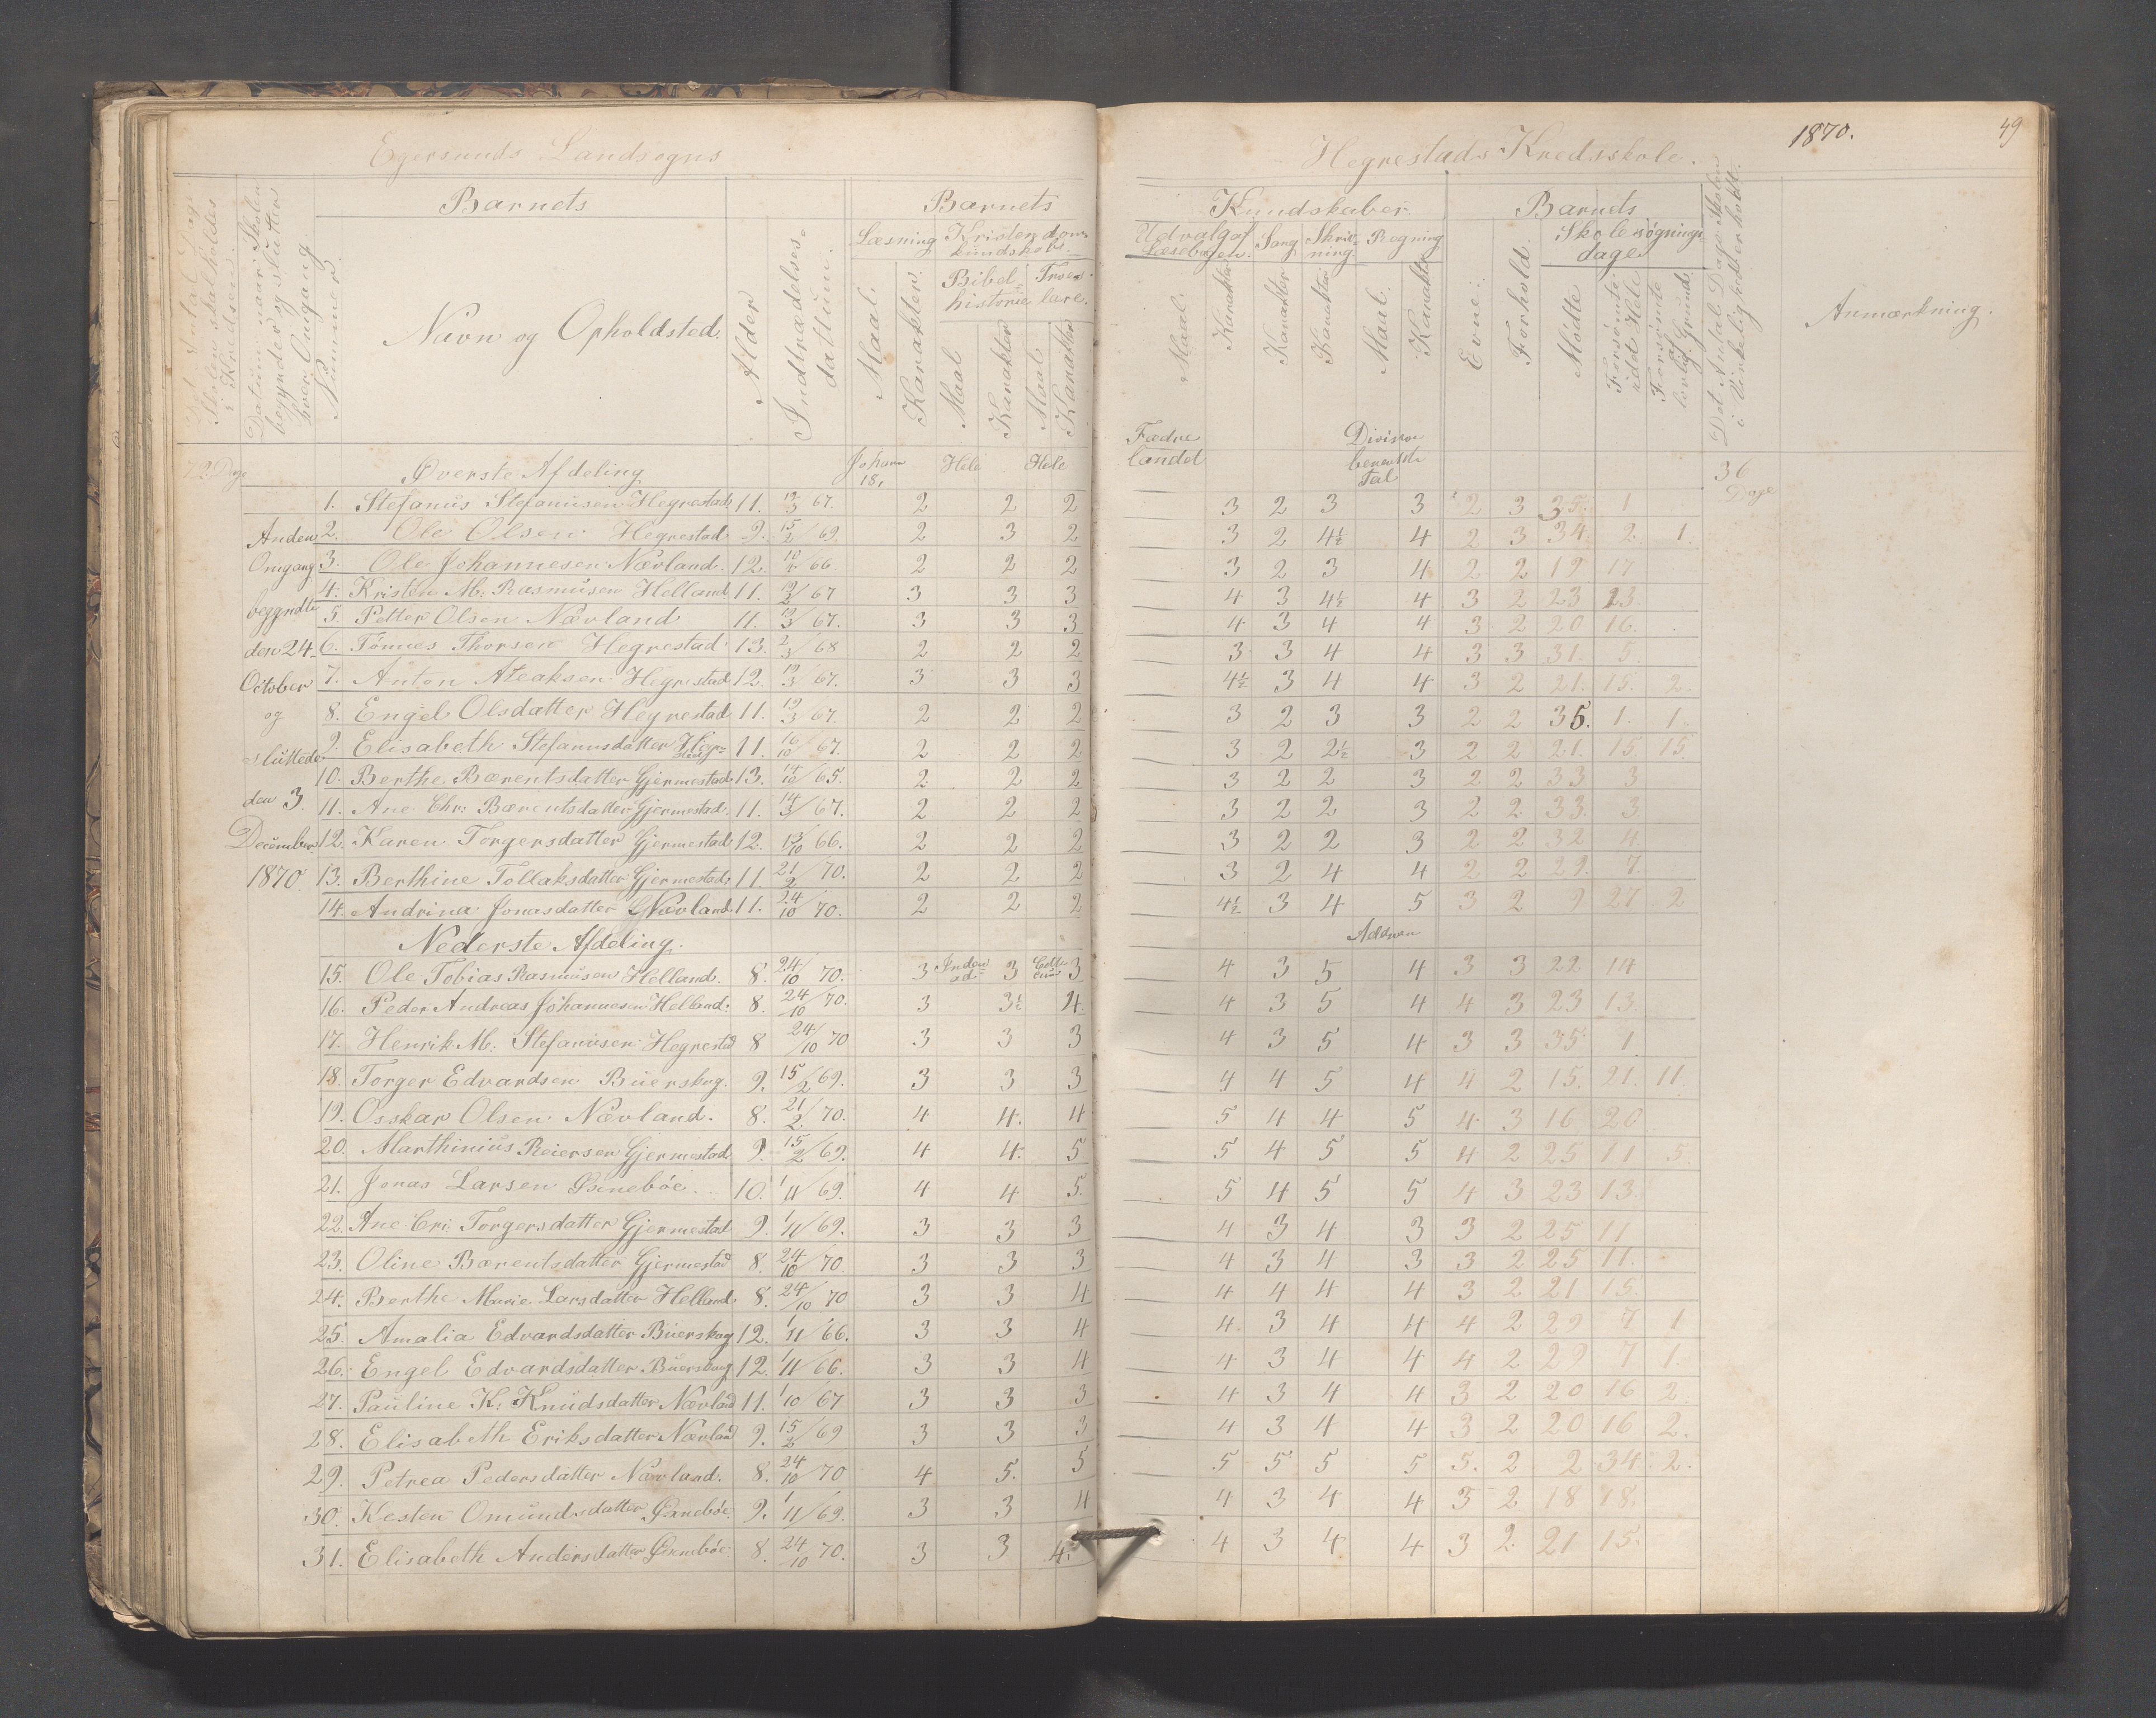 Egersunds Landsogns
Hegrestads Kredsskole.
1870.
49
Skolen skal holdes i Kredsen.
Datum naar Skolen begynder og slutter hver Omgang
Nummer
Barnets
Navn og Opholdsted.
Alder
Indtrædelses-dattum.
Barnets
Læsning
Maal.
Karakter.
Kristendoms-kundskab.
Bibel-historie
Maal
Karakter
Troes-lære.
Maal
Karakter
Kundskaber.
Udvalg af Læsebogen.
Maal.
Karakter
Sang
Karakter
Skriv-ning.
Karakter
Regning
Maal.
Karakter
Barnets
Evne.
Forhold.
Skolesøgnings dage
Mødte
Forsømte idet Hele
Forsømte af lovlig Grund.
Det Antal Dage Skolen i Virkelighed er holdt.
Anmærkning.
72 Dage
Øverste Afdeling
Johan 18,
Hele
Hele
Fædre landet
Division benævnte Tal
36 Dage
Anden Omgang begyndte den 24 October og sluttede den 3 December 1870.
1. Stefanus Stefanusen Hegrestad 11. 12/3 67. 2 2 2 3 2 3 3 2 3 35. 1
2. Ole Olsen Hegrestad. 9. 15/2/69. 2 3 2 3 2 4½ 4 2 3 34. 2. 1.
3. Ole Johannesen Nævland. 12. 10/4/66 2 2 2 3 2 3 4 2 2 19 17
4. Kristen M: Rasmusen Helland 11. 12/2/67 3 3 3 4 3 4½ 4 3 2 23 13
5. Petter Olsen Nævland 11. 12/3/67. 3 3 3 4 3 4 4 3 2 20 16.
6. Tønnes Thorsen Hegrestad 13. 2/3/68 2 2 2 3 3 4 4 3 3 31. 5
7. Anton Ateaksen Hegrestad 12. 12/3/67. 3 3 3 4½ 3 4 4 3 2 21. 15. 2.
8. Engel Olsdatter Hegrestad 11. 12/3/67. 2 2 2 3 2 3 3 2 2 35. 1. 1.
9. Elisabeth Stefanusdatter Hegr= stad 11. 16/10/67. 2 2 2 3 2 2½ 3 2 2 21. 15 15
10. Berthe Bærentsdatter Gjermestad 13. 14/10/65. 2 2 2 3 2 2 3 2 2 33 3
11. Ane Chr: Bærentsdatter Gjermestad. 11. 14/3/67. 2 2 2 3 2 2 3 2 2 33. 3.
12. Karen Torgersdatter Gjermestad 12. 13/10/66. 2 2 2 3 2 2 3 2 2 32 4.
13. Berthine Tollaksdatter Gjermestad 11. 21/2/70. 2 2 2 3 2 4 4 2 2 29. 7.
14. Andrina Jonasdatter Nævland 11. 24/10/70. 2 2 2 4½ 3 4 5 3 2 9 27 2
Nederste Afdeling.
15. Ole Tobias Rasmusen Helland. 8. 24/10 70. 3 3 3 4 3 5 4 3 3 22 14
16. Peder Andreas Johannesen Helland. 8. 24/10/70. 3 3½ 4. 4 3 5 4 4 3 23 13.
17. Henrik M: Stefanusen Hegrestad 8 24/10 70 3 3 3 4 3 5 4 3 3 35 1
18. Torger Edvardsen Buerskog. 9. 15/2/69. 3 3 3 4 4 5 4 4 2 15. 21. 11
19. Osskar Olsen Nævland. 8. 21/2/70. 4 4. 4 5 4 4 5 4. 3 16 20
20. Marthinius Reiersen Gjermestad 9. 15/2/69. 4 4. 5. 5 4 5 5 4 2 25 11 5.
21. Jonas Larsen 10. 1/11/69. 4 4 5. 5 4 5 5 4 3 23 13.
22. Ane Cri: Torgersdatter Gjermestad 9. 1/11/69. 3 3 3 4 3 4 3 3 2 25 11
23. Oline Bærentsdatter Gjermestad 8. 24/10/70. 3 3 3 4 3 4 3 3 2 25 11.
24. Berthe Marie Larsdatter Helland. 8. 24/10 70 3 3 4 4 4 4 4 3 2 21 15.
25. Amalia Edvardsdatter Buerskog 12. 1/11/66. 3 3 4 4. 3 4 4 4 2 29 7 1
26. Engel Edvardsdatter Buerskog 12. 1/11/66. 3 3 4 4 3 4 4 4 2 29 7 1.
27. Pauline K: Knudsdatter Nævland 11. 1/10 67 3 3 3 4 3 4 4 3 2 20 16 2.
28. Elisabeth Eriksdatter Nævland 9. 15/2/69 3 3 3 4 3 4 4 3 2 20 16 2.
29. Petrea Pedersdatter Nævland. 8. 24/10/70 4 5. 5 5 5 5 5 5. 2 2 34 2.
30. Kesten Omundsdatter 9. 1/11/69. 3 3 4 4 3 4 4 3 2 18 18.
31. Elisabeth Andersdatter 8. 24/10 70. 3 3 4. 4 3 4 4 3 2. 21 15.